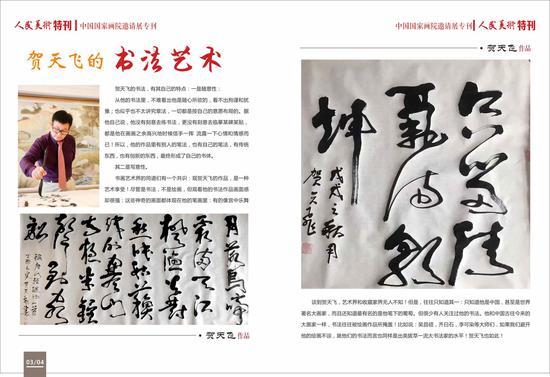 人民美术特刊 中国国家画院邀请展专刊
贺天飞的 书法艺术
贺天飞的书法,有其自己的特点:一是随意性:
从他的书法里,不难看出他是随心所欲的,看不出拘谨和犹
豫;也似乎也不太讲究章法,一切都是按自己的意愿布局的。据
他自己说,他没有刻意去练书法,更没有刻意去临摹某碑某贴,
都是他在画画之余高兴地时候信手一挥 流露一下心情和情感而
已!所以,他的作品里有别人的笔法,也有自己的笔法,有传统
东西,也有创新的东西,最终形成了自己的书体。
其二是写意性。
书画艺术界的同道们有一个共识:观贺天飞的作品,是一种
艺术享受!尽管是书法,不是绘画,但观看他的书法作品画面感
却很强;这些神奇的画面都体现在他的笔画里:有的像宫中乐舞
月落乌啼
霜满天江
枫渔火对
愁眠姑苏
城外寒山
寺夜半钟
声到客
船
贺天飞 作品
03/04
中国国家画院邀请展专刊 人民美术特刊
贺天飞 作品
戊戌之秋月
贺天飞
谈到贺天飞,艺术界和收藏家界无人不知!但是,往往只知道其一:只知道他是中国,甚至是世界
著名大画家,而且还知道最有名的是他笔下的葡萄。但很少有人关注过他的书法。他和中国古往今来的
大画家一样,书法往往被绘画作品所掩盖!比如说:吴昌硕,齐白石,李可染等大师们,如果我们避开
他的绘画不谈,就他们的书法而言也同样是出类拔萃一流大书法家的水平!贺天飞也如此!